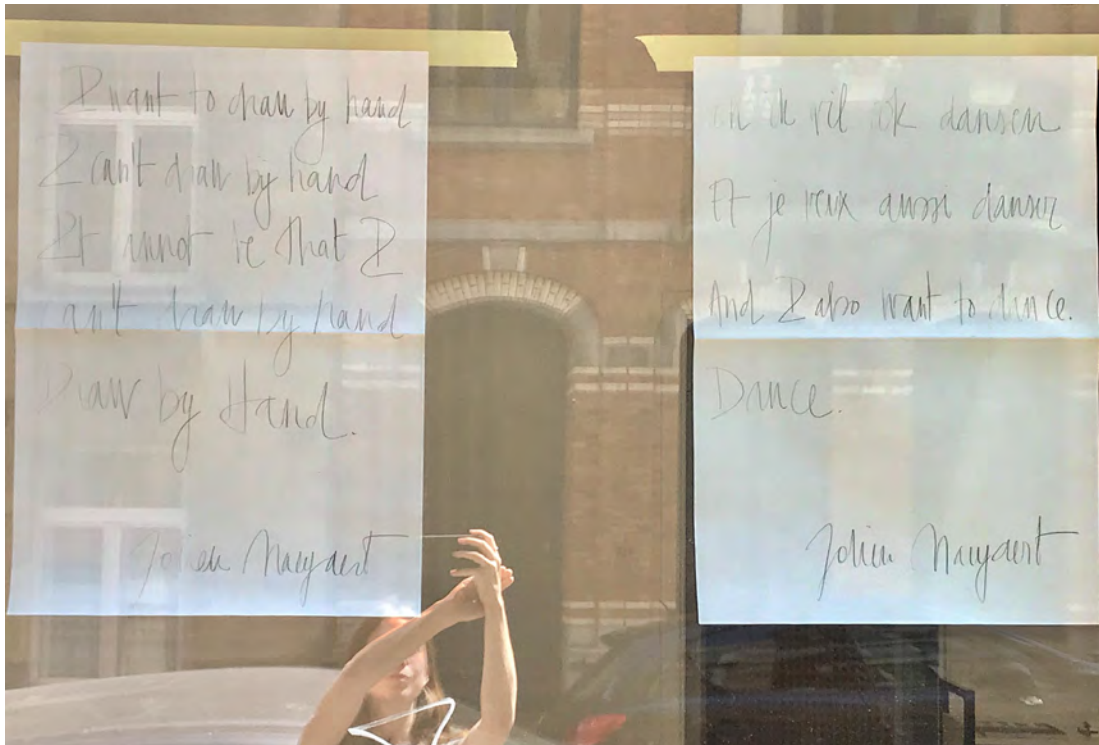 I want to draw by hand
I can't draw by hand
It cannot be that I
can't draw by hand
Draw by Hand.
Jolien Naeyaert
en ik wil ook dansen
Et je veux aussi danser
And I also want to dance.
Dance.
Jolien Naeyaert